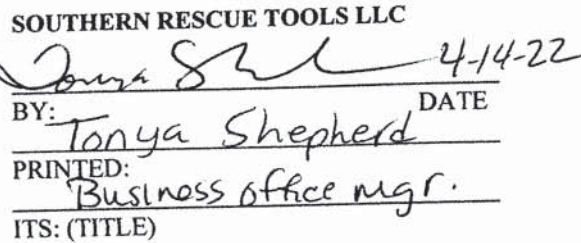 SOUTHERN RESCUE TOOLS LLC
Tonya Sh 4-14-22
BY: DATE
Tonya Shepherd
PRINTED:
Business office mgr.
ITS: (TITLE)